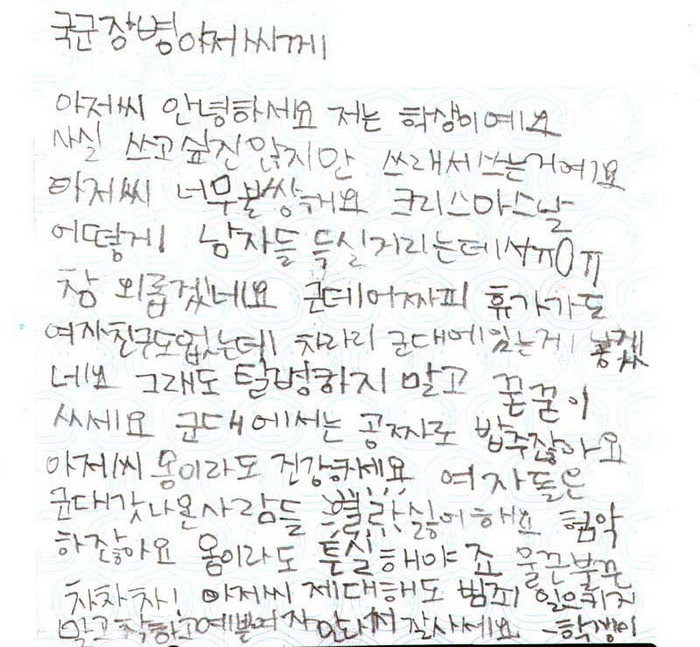 국군장병아저씨께
아저씨 안녕하세요 저는 학생이예요
사실 쓰고 싶진 않지만 쓰래서쓰는거예요
아저씨 너무불쌍해요 크리스마스날
어떻게 남자들 득실거리는데서ㅠ0ㅠ
참 외롭겠네요 군데어짜피 휴가가도
여자친구도없는데 차라리 군대에있는게 좋겠
네요 그래도 탈병하지 말고 꾿꾿이
싸세요 군대에서는 공짜로 밥주잖아요
아저씨 몸이라도 건강하세요 여자들은
군대갓나온사람들 별라싫어해요 험악
하잖아요 몸이라도 튼실해야죠 울끈불끈
차차차! 아저씨 제대해도 범죄 일으키지
말고착하고예쁜여자만나서 잘사세요 -학생이